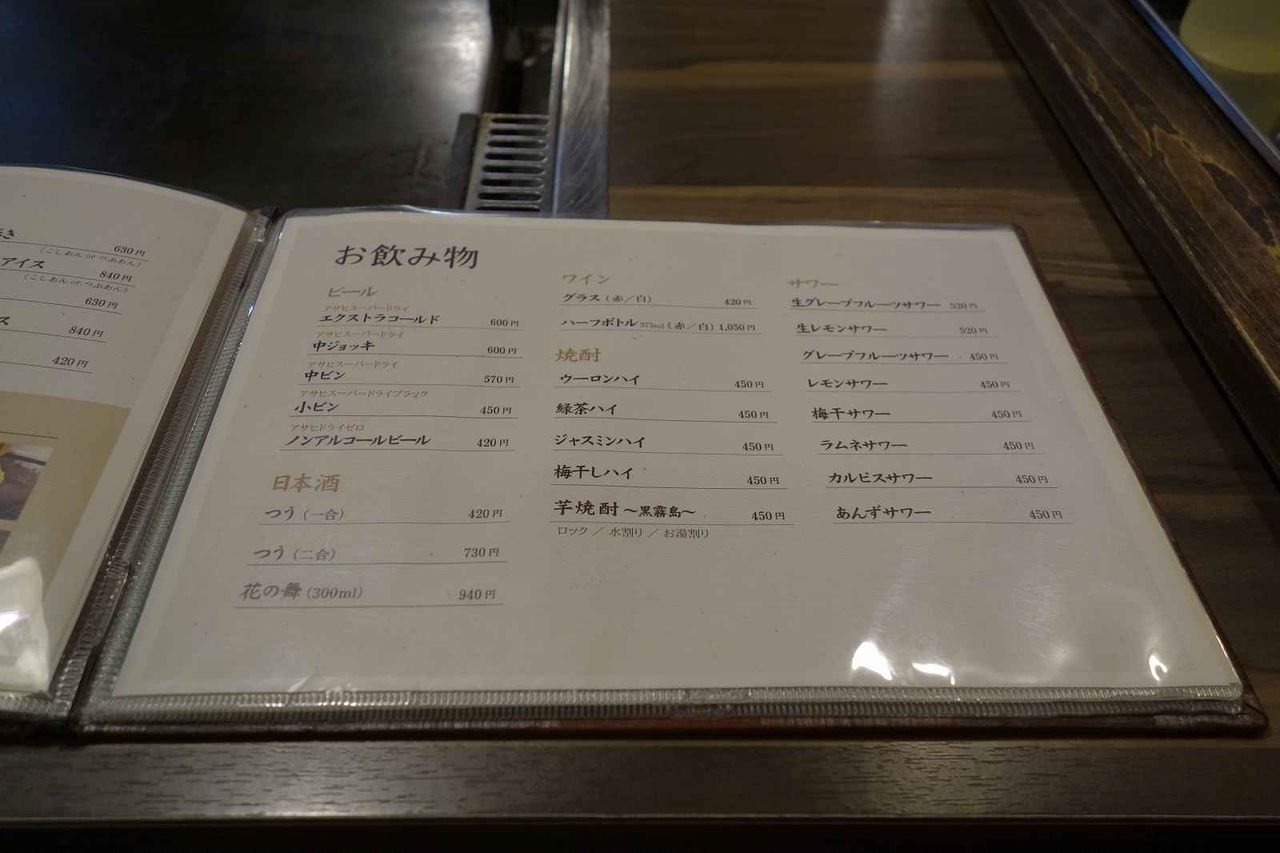 き
630円
(こしあん or つぶあん)
アイス
840円
(こしあん or つぶあん)
630円
ス
840円
420円
お飲み物
ビール
アサヒスーパードライ
エクストラコールド 600円
アサヒスーパードライ
中ジョッキ 600円
アサヒスーパードライ
中ビン 570円
アサヒスーパードライブラック
小ビン 450円
アサヒドライゼロ
ノンアルコールビール 420円
日本酒
つう (一合) 420円
つう (二合) 730円
花の舞 (300ml) 940円
ワイン
グラス (赤／白) 420円
ハーフボトル 375ml (赤／白) 1,050円
焼酎
ウーロンハイ 450円
緑茶ハイ 450円
ジャスミンハイ 450円
梅干しハイ 450円
芋焼酎 ～黒霧島～ 450円
ロック ／ 水割り ／ お湯割り
サワー
生グレープフルーツサワー 520円
生レモンサワー 520円
グレープフルーツサワー 450円
レモンサワー 450円
梅干サワー 450円
ラムネサワー 450円
カルピスサワー 450円
あんずサワー 450円